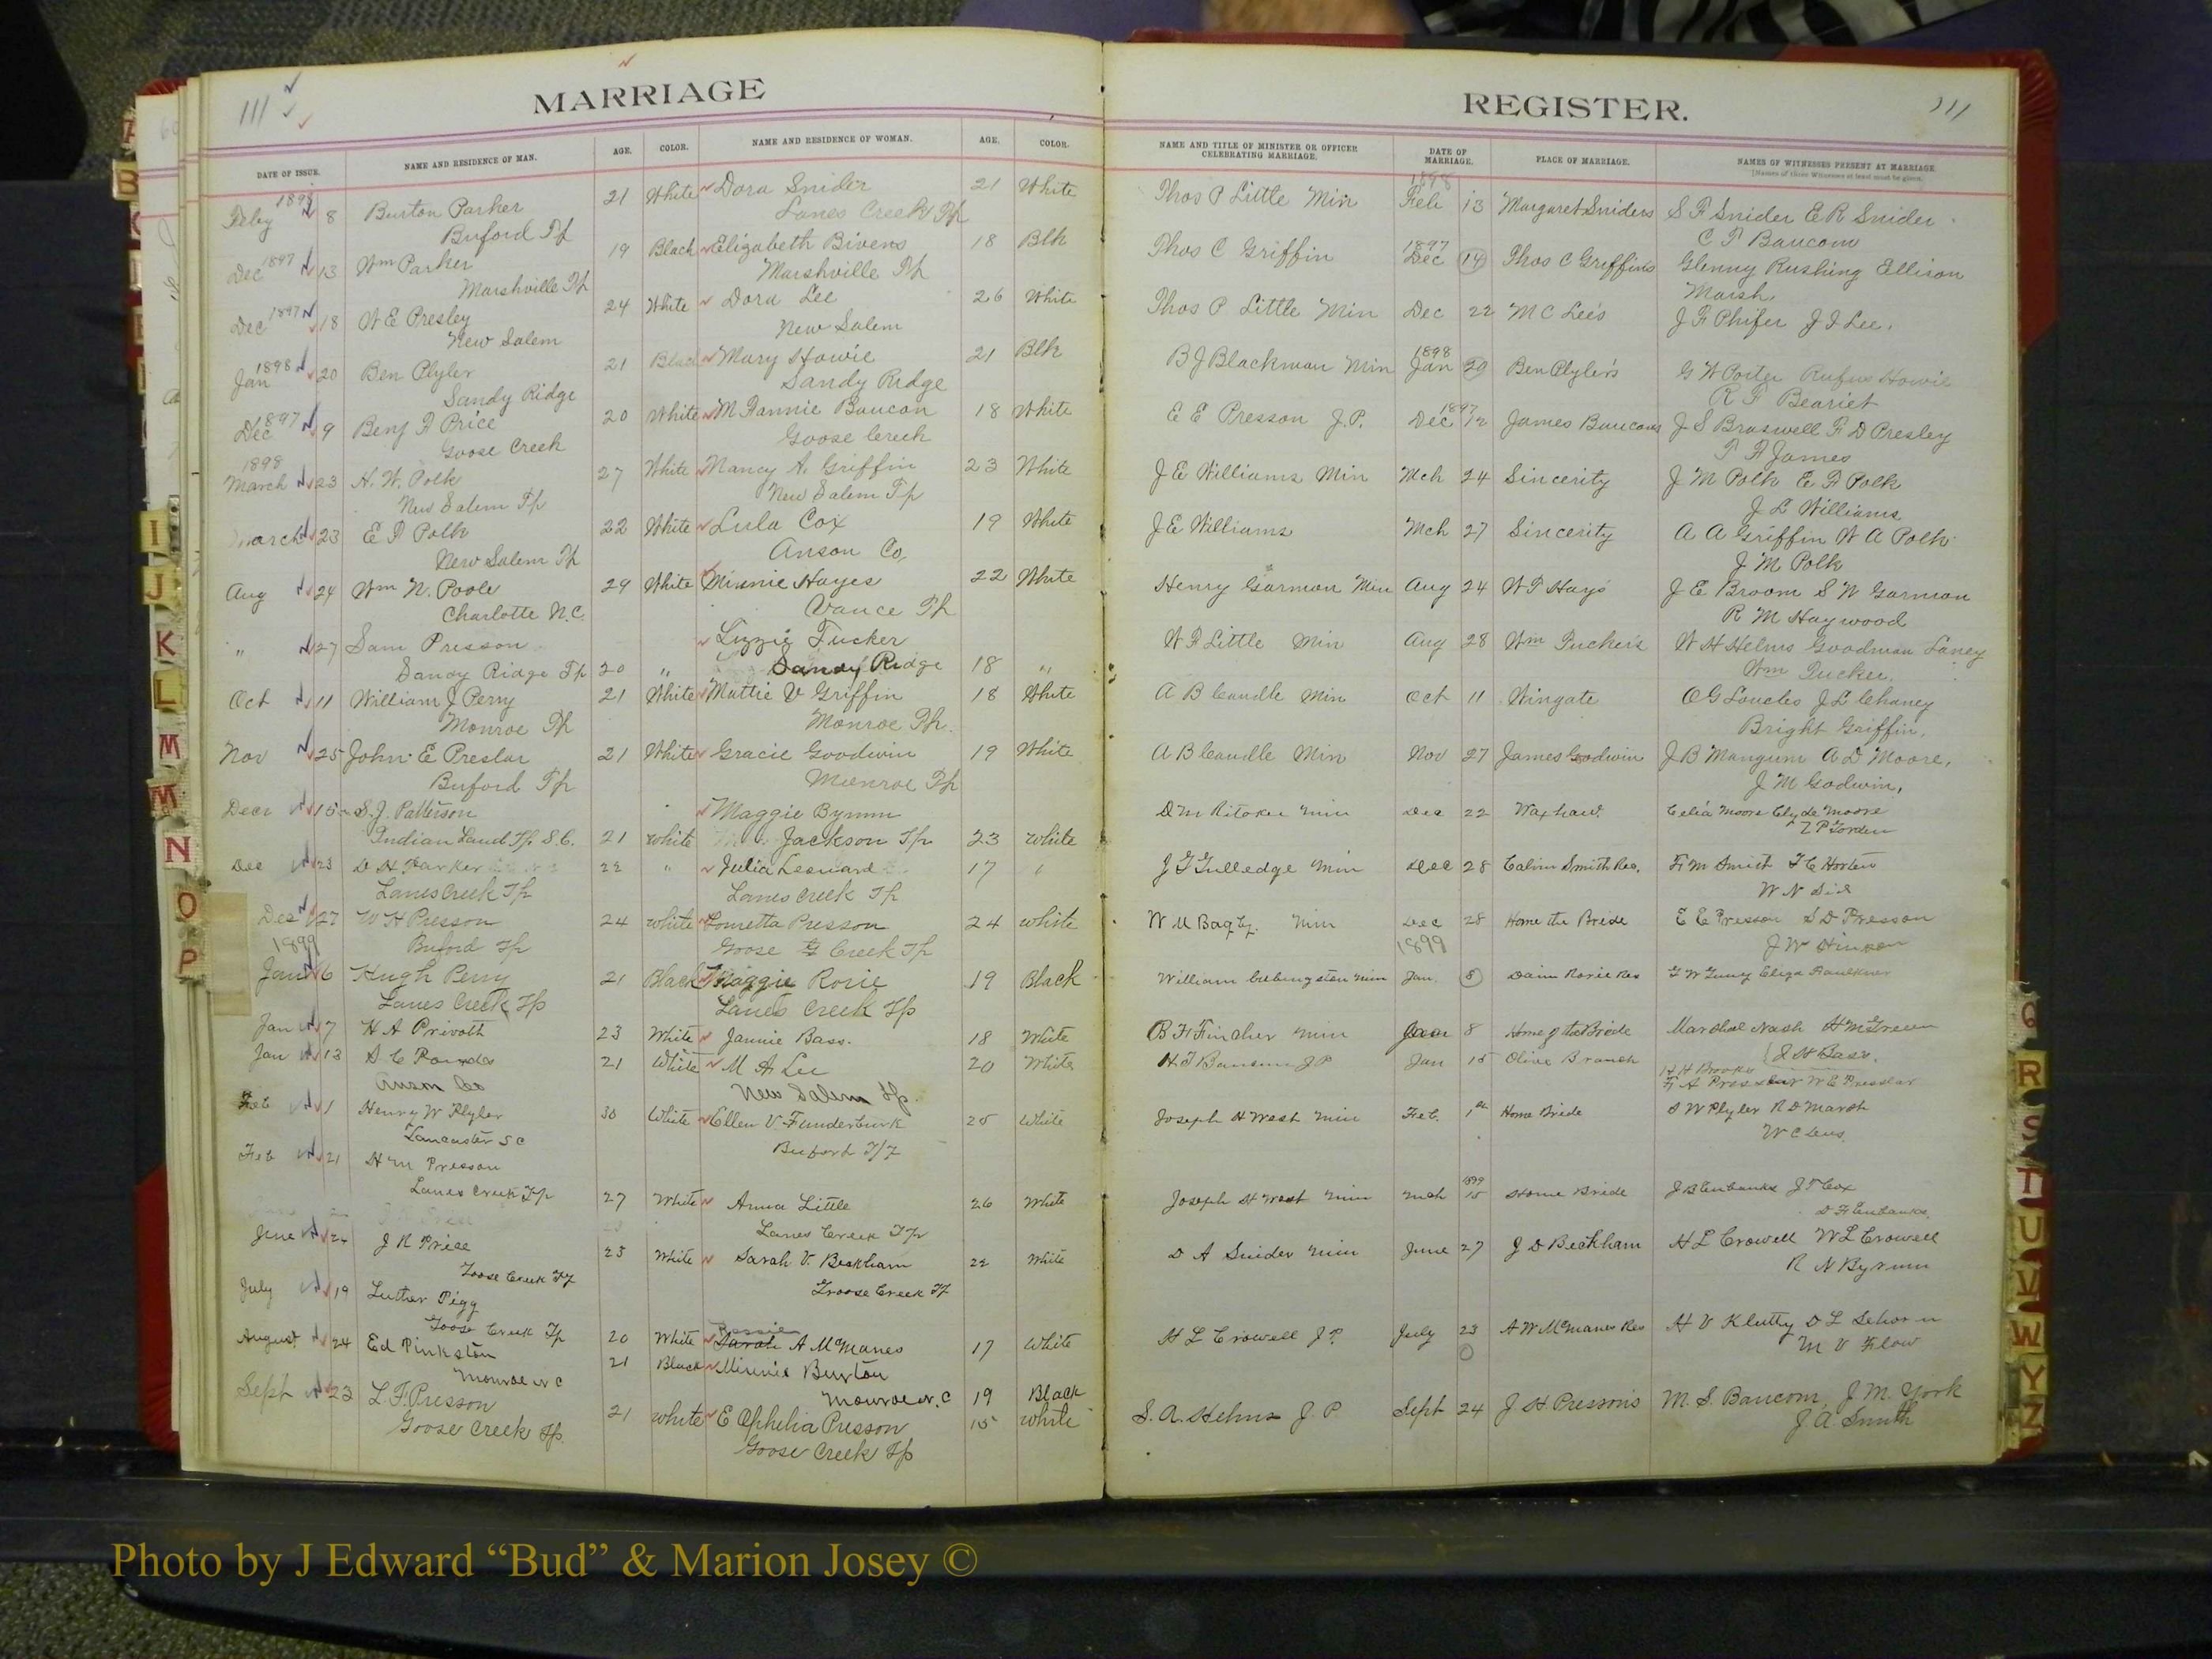 111 MARRIAGE REGISTER. 111
DATE OF ISSUE. NAME AND RESIDENCE OF MAN. AGE. COLOR. NAME AND RESIDENCE OF WOMAN. AGE. COLOR. NAME AND TITLE OF MINISTER OR OFFICER CELEBRATING MARRIAGE. DATE OF MARRIAGE. PLACE OF MARRIAGE. NAMES OF WITNESSES PRESENT AT MARRIAGE
[Names of three Witnesses at least must be given.]
1898 1898
Feby 8 Burton Parker 21 White Dora Snider 21 White Thos P Little Min Feb 13 Margaret Sniders S F Snider E R Snider
Buford Tp Lanes Creek Tp C F Baucom
Dec 1897 13 Wm Parker 19 Black Elizabeth Bivens 18 Blk Thos C Griffin 1897 Dec 14 Thos C Griffins Glenny Rushing Ellison
Marshville Tp Marshville Tp Marsh.
Dec 1897 18 W E Presley 24 White Dora Lee 26 White Thos P Little Min Dec 22 M C Lee's J F Phifer J I Lee.
New Salem New Salem
Jan 1898 20 Ben Plyler 21 Black Mary Howie 21 Blk B J Blackman Min 1898 Jan 20 Ben Plyler's G W Porter Rufus Howie
Sandy Ridge Sandy Ridge
Dec 1897 9 Benj F Price 20 White M Fannie Baucon 18 White E E Presson J.P. Dec 1897 12 James Baucoms J S Braswell F D Presley
Goose Creek Goose Creek T F James
1898
March 23 H. W. Polk 27 White Nancy A. Griffin 23 White J E Williams Min Mch 24 Sincerity J M Polk E F Polk
New Salem Tp New Salem Tp J L Williams
March 23 E F Polk 22 White Lula Cox 19 White J E Williams Mch 27 Sincerity A A Griffin W A Polk
New Salem Tp Anson Co, J M Polk
Aug 24 Wm N. Poole 29 White Minnie Hayes 22 White Henry Garmon Min Aug 24 W P Hays J E Broom S W Garmon
Charlotte N.C. Vance Tp R M Haywood
" 27 Sam Presson Lizzie Tucker W F Little Min Aug 28 Wm Tucker's W H Helms Goodman Laney
Sandy Ridge Tp 20 " Sandy Ridge 18 " Wm Tucker.
Oct 11 William J Perry 21 White Mattie V Griffin 18 White A B Caudle Min Oct 11 Wingate J L Chaney
Monroe Tp Monroe Tp. Bright Griffin.
Nov 25 John E Preslar 21 White Gracie Goodwin 19 White A B Caudle Min Nov 27 James Goodwin J B Mangum A D Moore,
Buford Tp Monroe Tp J M Godwin,
Decr 15 S. J. Patterson Maggie Bynum Dec 22 Waxhaw. Celia Moore Clyde Moore
Indian Land Tp. S.C. 21 white Jackson Tp 23 white
Dec 23 D H Parker 22 " Julia Leonard 17 " J G Gulledge Min Dec 28 Calvin Smith Res. F M Smith
Lanes Creek Tp Lanes Creek Tp
Dec 27 W H Presson 24 white Louretta Presson 24 white Min Dec 28 Home the Bride E E Presson S D Presson
1899 Buford Tp Goose Creek Tp 1899
Jan 6 Hugh Perry 21 Black Maggie Rorie 19 Black Jan. 8 Eliza Faulkner
Lanes Creek Tp Lanes Creek Tp
Jan 7 H A Privott 23 White Jannie Bass. 18 White B F Fincher Min Jan 8 Home of the Bride Marshal Nash H M Green
Jan 13 21 White M A Lee 20 White Jan 15 Olive Branch J H Bass.
Anson Co New Salem Tp. W E Presslar
Feb 1 Henry W Plyler 30 White Ellen V Funderburk 25 White Joseph H West Min Feb. 1st Home Bride S W Plyler R D Marsh
Lancaster S C Buford Tp
Feb 21 H M Presson
Lanes Creek Tp 27 White Anna Little 26 White Joseph H West Min Mch 1899 15 Home Bride J B Eubanks J T Cox
Lanes Creek Tp D F Eubanks.
June 24 J R Price 23 White Sarah V. Beckham 22 White D A Snider Min June 27 J D Beckham H L Crowell W L Crowell
Goose Creek Tp Goose Creek Tp R N Byrum
July 19 Luther Pigg
Goose Creek Tp 20 White Bessie Sarah A McManes 17 White H L Crowell J P. July 23 A W McManes Res H V Klutty
August 24 Ed Pinkston 21 Black Minnie Burton M V Flow
Monroe N C Monroe N. C 19 Black
Sept 23 L. F. Presson 21 white E Ophelia Presson 15 white S. A. Helms J. P. Sept 24 J. H. Presson's M. S. Baucom, J. M. York
Goose Creek Tp. Goose Creek Tp J. A. Smith
I
J
K
L
M
Mc
N
O
P
Q
R
S
T
U
V
W
Y
Z
Photo by J Edward “Bud” & Marion Josey ©